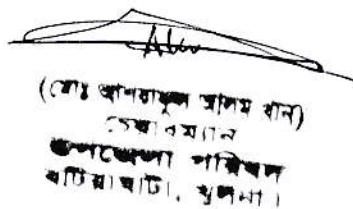 (মোঃ আশরাফুল আলম খান)
চেয়ারম্যান
উপজেলা পরিষদ
বটিয়াঘাটা, খুলনা।